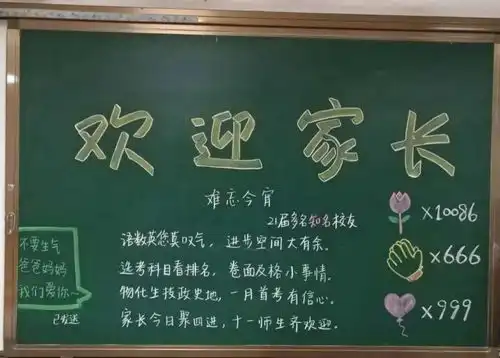 欢迎家长
难忘今宵
21届多名知名校友
语数英您莫叹气，进步空间大有余.
选考科目看排名，卷面及格小事情.
物化生技政史地，一月首考有信心.
家长今日聚四进，十一师生齐欢迎.
不要生气
爸爸妈妈
我们爱你~
已发送
×10086
×666
×999